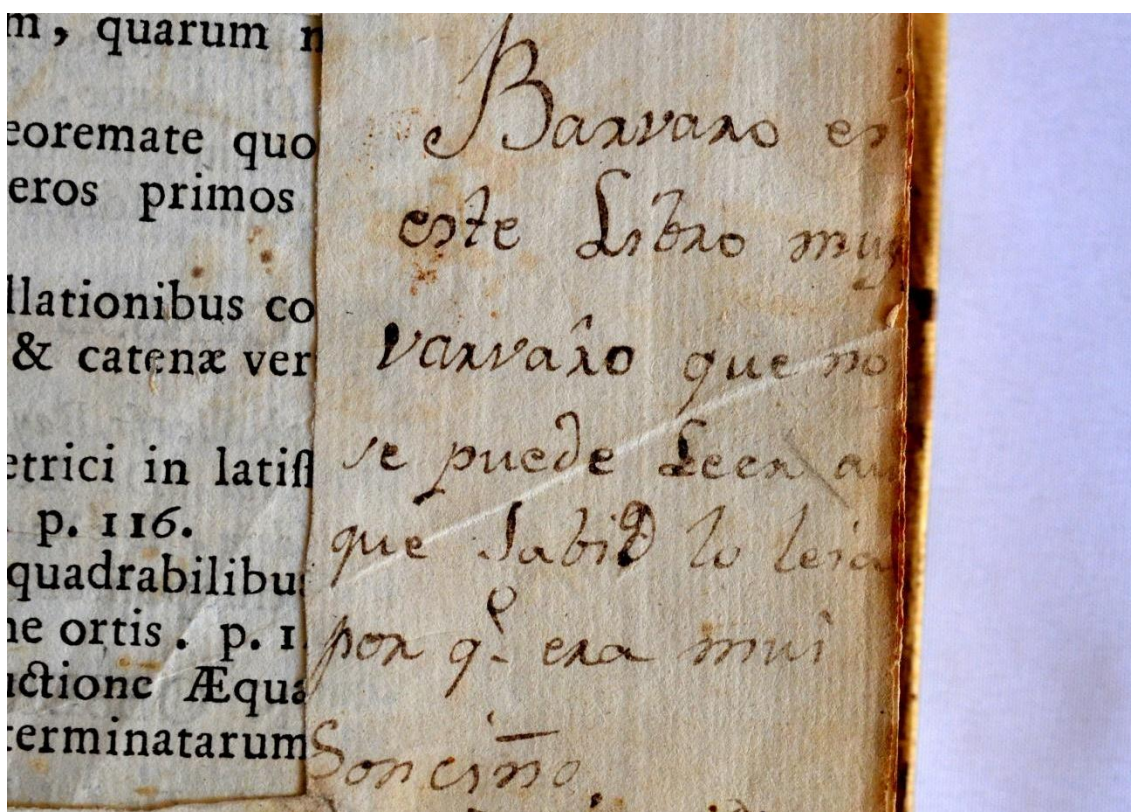 m, quarum n
eoremate quo
eros primos
llationibus co
& catenæ ver
etrici in latiſſ
p. 116.
quadrabilibus
ne ortis. p. 1
ctione Æqua
terminatarum
Barvaro es
este Libro muy
varvaro que no
se puede Leer au
que Sabio lo leia
por q.e era mui